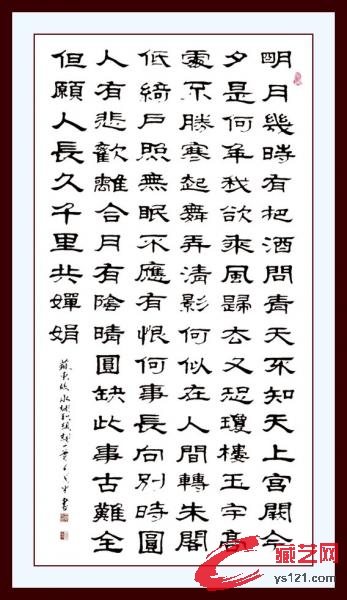 明月幾時有把酒問青天不知天上宮闕今
夕是何年我欲乘風歸去又恐瓊樓玉宇高
處不勝寒起舞弄清影何似在人間轉朱閣
低綺戶照無眠不應有恨何事長向別時圓
人有悲歡離合月有陰晴圓缺此事古難全
但願人長久千里共嬋娟
蘇東坡水調歌頭
藏艺网
ys121.com